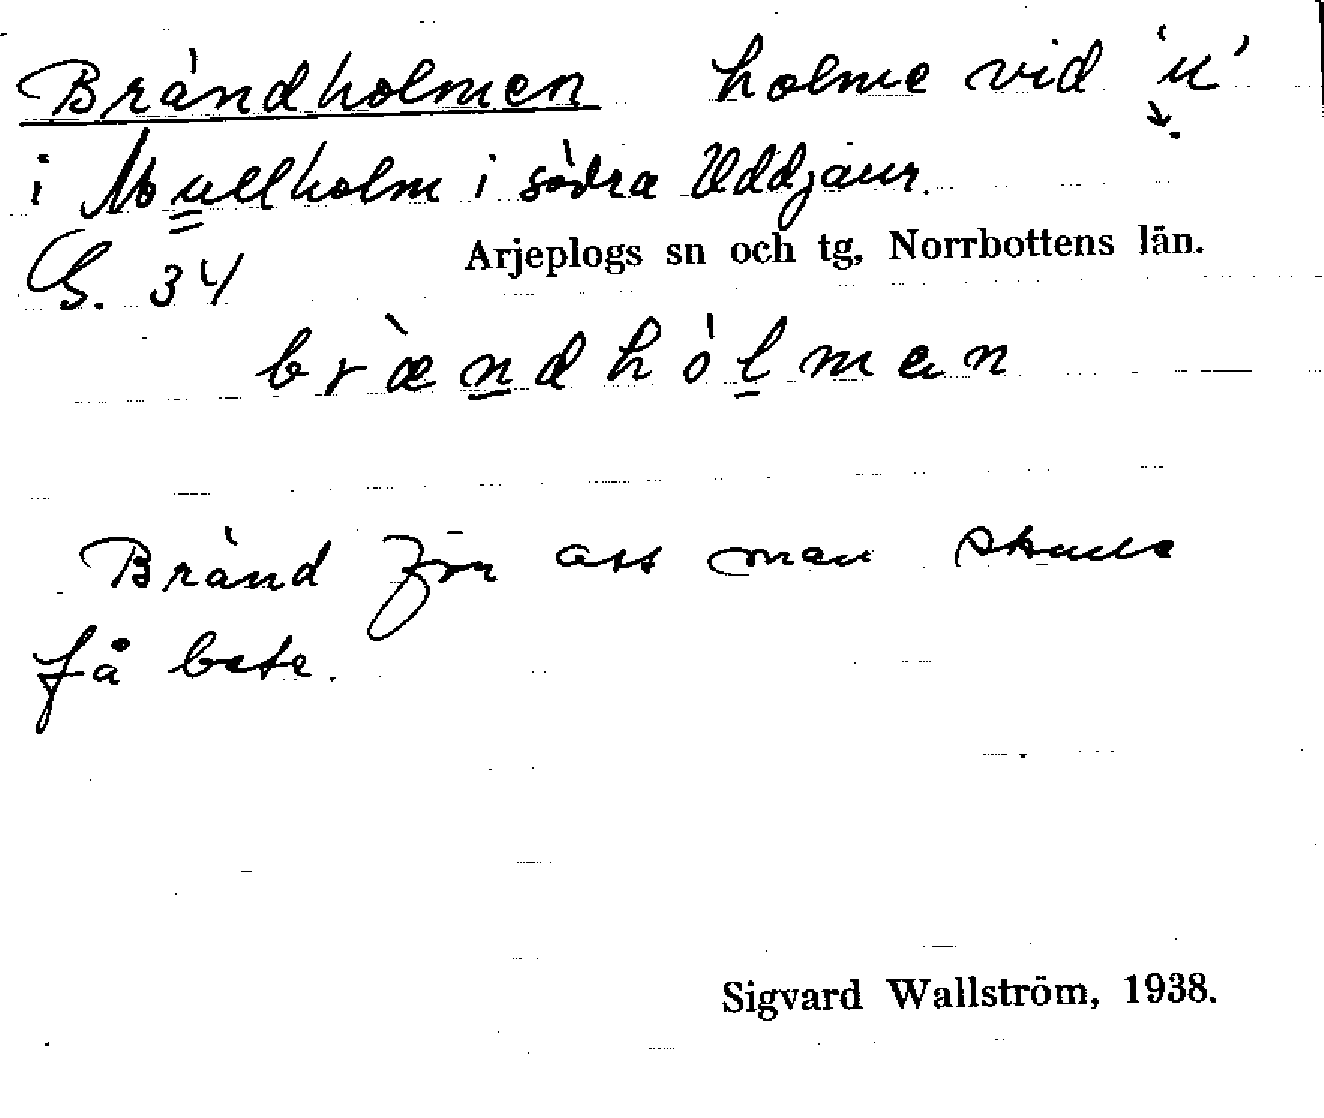 Brändholmen holme vid 'u'
i Mullholm i södra Uddjaur.
S. 34 Arjeplogs sn och tg, Norrbottens län.
bræ̀ndhólmen
Bränd för att man skulle
få bete.
Sigvard Wallström, 1938.